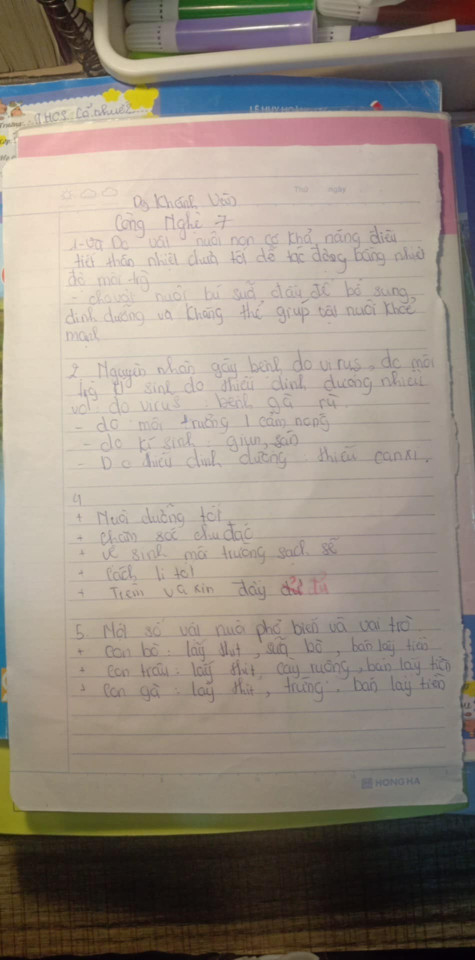 THCS Cổ Nhuế
LÊ HUY HOÀNG
Thứ ngày
Dg Khánh Vân
Công Nghệ 7
1-Và Do vật nuôi non có khả năng điều
tiết thân nhiệt chưa tốt dễ tác động bằng nhiệt
độ môi trg
- cho vật nuôi bú sữa đầy để bổ sung
dinh dưỡng và kháng thể grúp vật nuôi khỏe
mạnh
2. Nguyên nhân gây bệnh do virus, do môi
trg kí sinh do thiếu dinh dương nhiều
vd: do virus bệnh gà rù
- do môi trường cảm nóng
- do kí sinh giun, sán
- Do thiếu dinh dưỡng thiếu canxi.
4
+ Nuôi dưỡng tốt
+ chăm sóc chu đáo
+ vệ sinh môi trường sạch sẽ
+ Cách li tốt
+ Tiêm vă xin đầy đủ
5. Một số vật nuôi phổ biến và vai trò
+ con bò: lấy thịt, sữa bò, bán lấy tiền
+ Con trâu: lấy thịt, cày ruộng, bán lấy tiền
+ Con gà: lấy thịt, trứng, bán lấy tiền
HONG HA